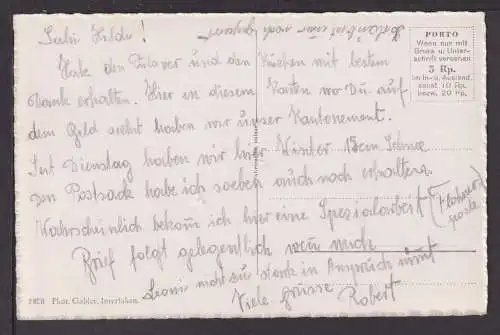 Liebi Hildi!
Habe den Pulover und den Kuchen mit bestem
Dank erhalten. Hier in diesem Kasten wo Du auf
dem Bild siehst haben wir unser Kantonement.
Seit Dienstag haben wir hier Winter 15cm Schnee
Den Postsack habe ich soeben auch noch erhalten.
Wahrscheinlich bekom ich hier eine Spezialarbeit
posten)
Brief folgt gelegentlich wen mich
nicht zu stark in Anspruch nimt
Viele Grüsse Robert
PORTO
Wenn nur mit
Gruss u. Unter-
schrift versehen
5 Rp.
im In- u. Ausland,
sonst 10 Rp.
bezw. 20 Rp.
Phot. Gabler, Interlaken.